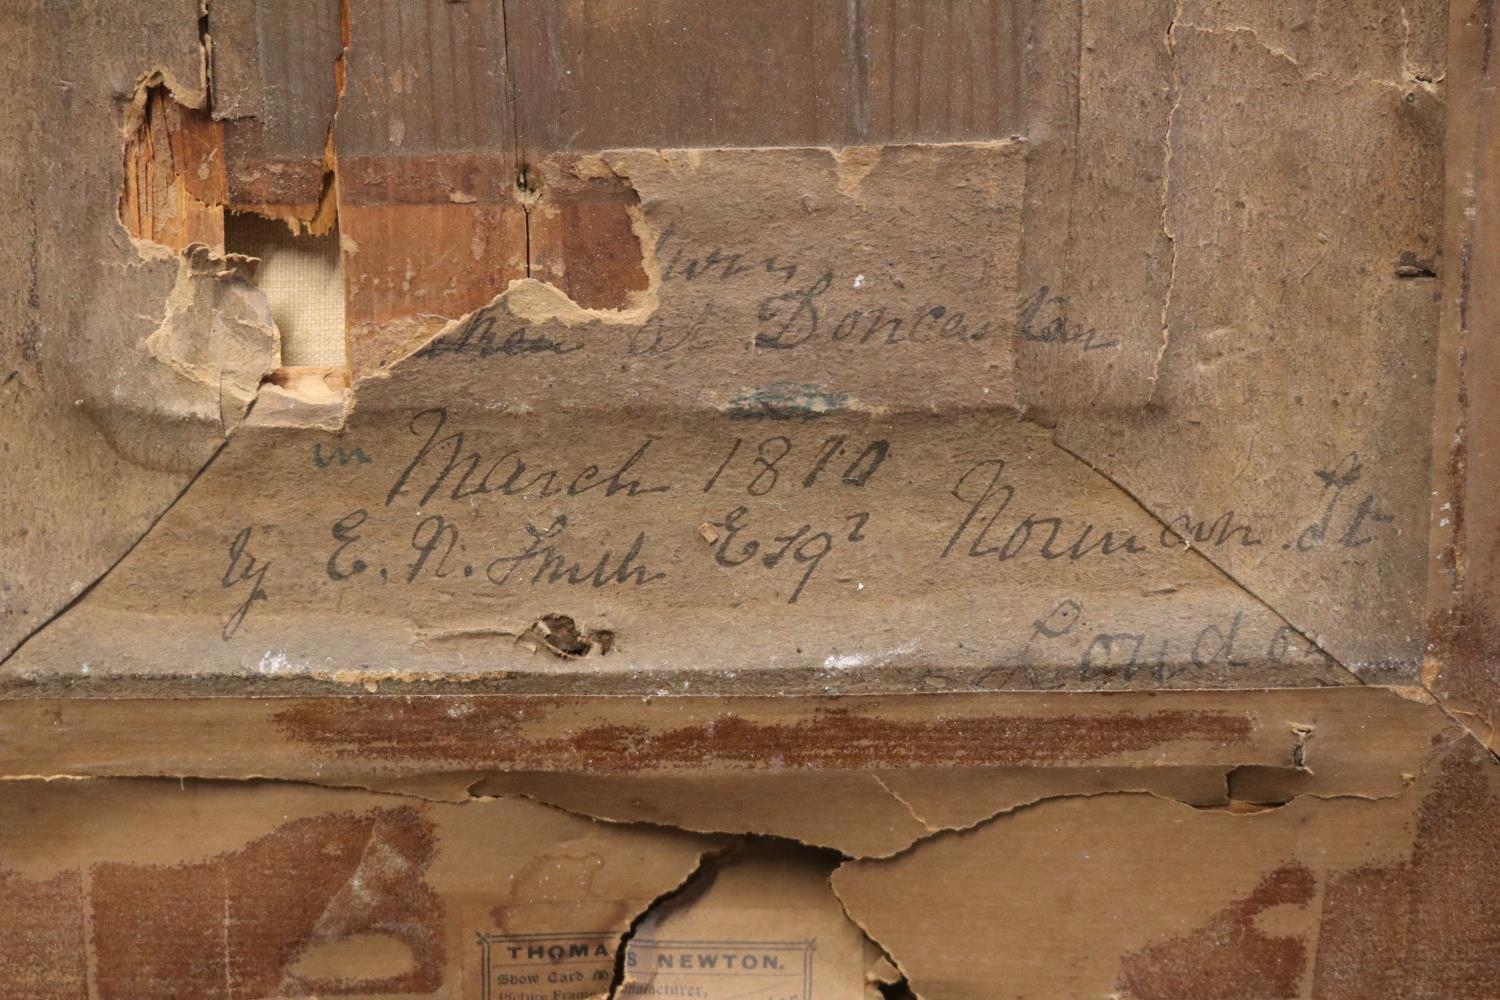 at Doncaster
in March 1810
by E. N. Smith Esqr Norman St
London
THOMAS NEWTON.
Show Card
Picture Frame Manufacturer,